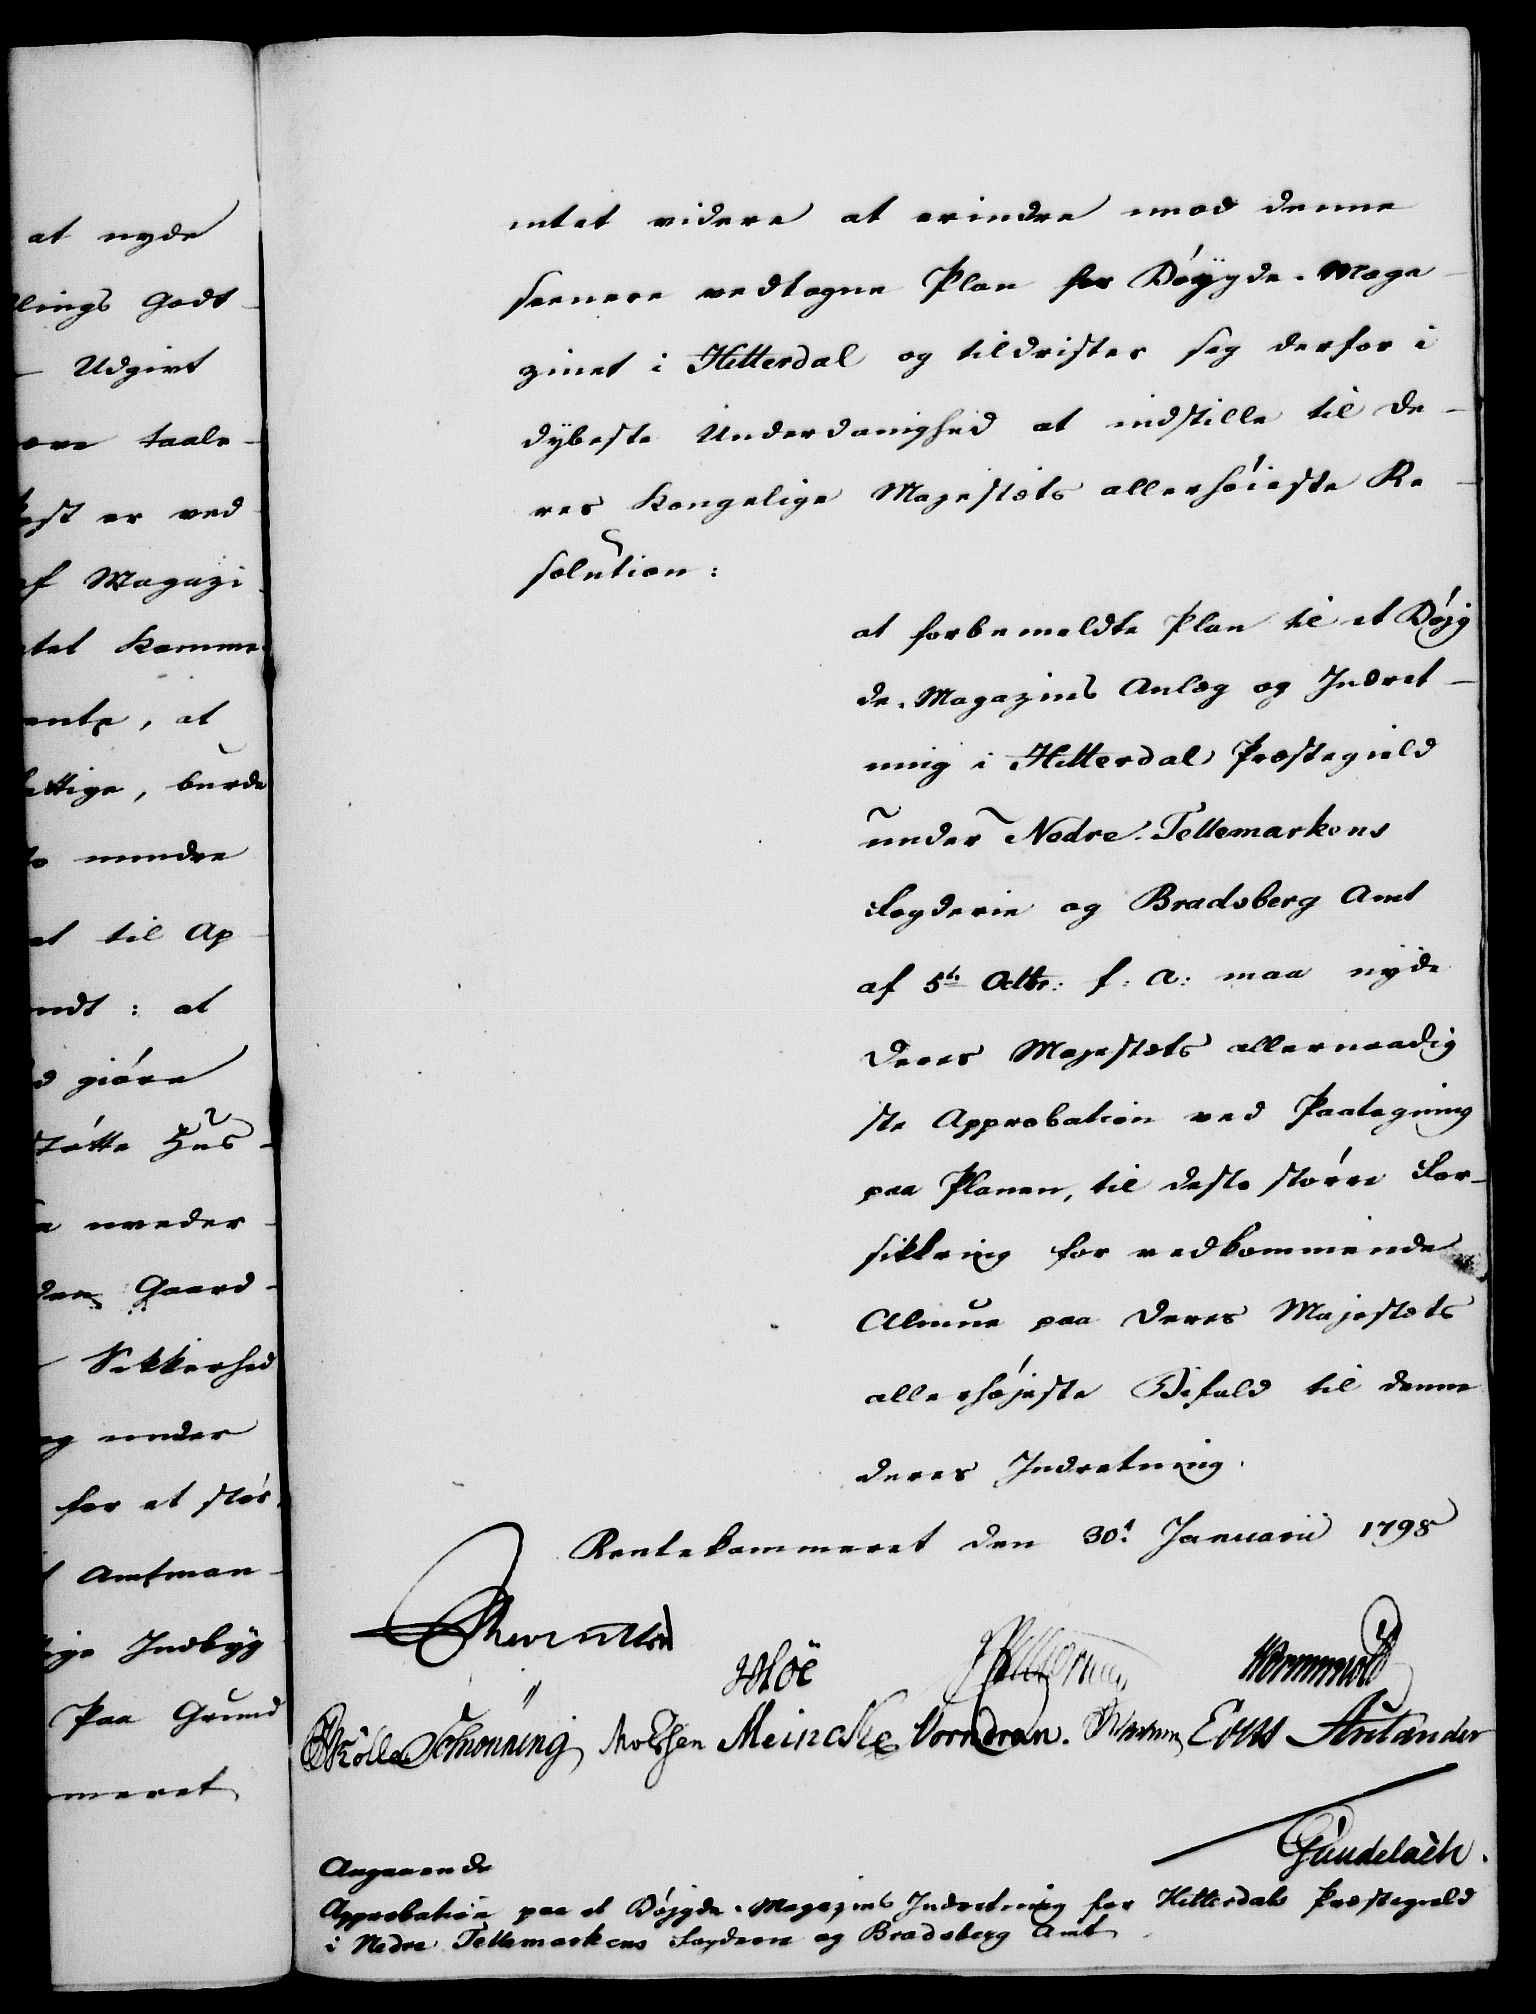 at nyde
lings Godt-
- Udgivt
ere taale-
st er ved
af Magazi-
tet komme
ente, at
ttige, burde
mindre
et til Ap-
ndt: at
giöre
Hus-
Gaard-
Sikkerhed
og under
for et stör-
Amtman-
ge Indbÿg
Paa Grund
meret
intet videre at erindre imod denne
seenere vedtagne Plan for Böÿgde-Maga-
zinet i Hitterdal og tildrister sig derfor i
dÿbeste Underdanighed at indstille til De-
res Kongelige Majestæts allerhöieste Re-
solution:
at forbemeldte Plan til et Böjg
de-Magazins Anlæg og Indret-
ning i Hitterdal Præstegield
under Nedre-Tellemarkens
Fogderie og Bradsberg Amt
af 5te Octbr: f: A: maa nÿde
Deres Majestæts allernaadig
ste Approbation ved Paategning
paa Planen, til desto större For-
sikkring for vedkommende
Almue paa Deres Majestæts
allerhöjeste Bifald til denne
deres Indretning.
Rentekammeret den 30t Januarii 1798
Hoë Wormskiold
Schönning Meincke Vorndran. Evers
Gundelach.
Angaaende
Approbation paa et Böjgde-Magazins Indretning for Hitterdals Præstegield
i Nedre Tellemarkens Fogderie og Bradsberg Amt